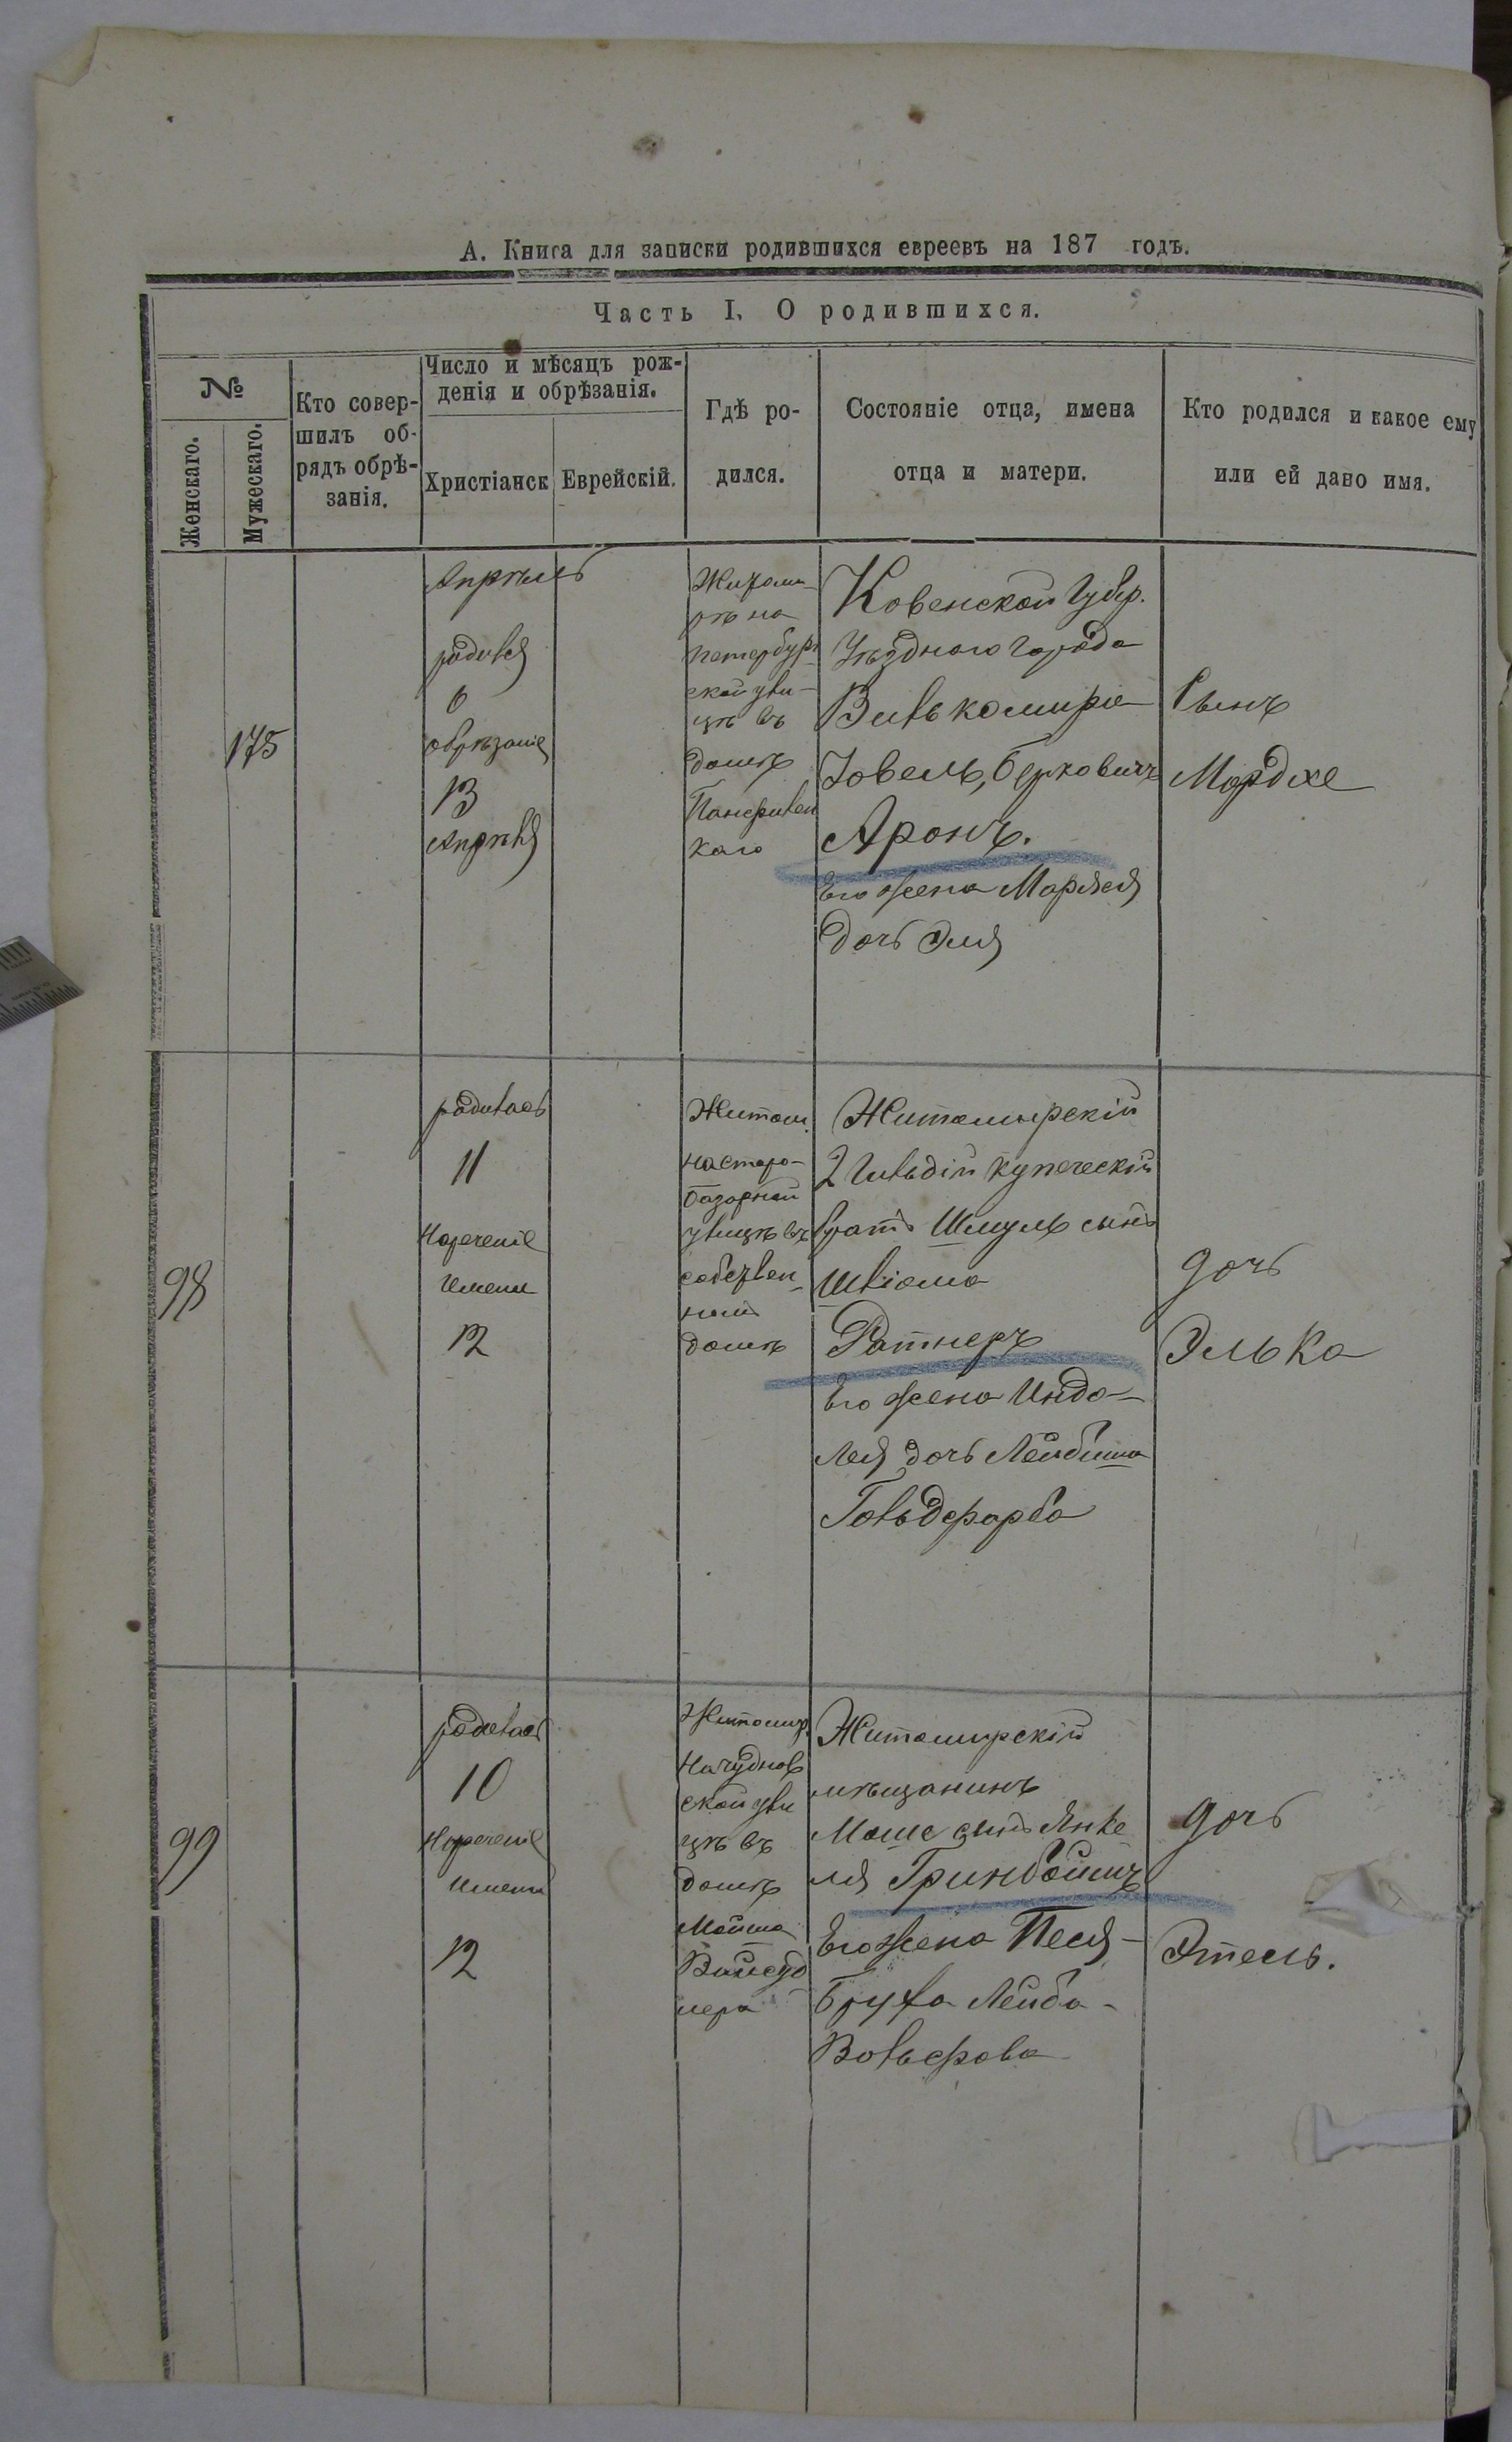 А. Книга для записки родившихся евреевъ на 187 годъ.
Часть I. О родившихся.
№
Женскаго.
Мужескаго.
Кто совер-
шилъ об-
рядъ обрѣ-
занія.
Число и мѣсяцъ рож-
денія и обрѣзанія.
Христіанск
Еврейскій.
Гдѣ ро-
дился.
Состояніе отца, имена
отца и матери.
Кто родился и какое ему
или ей дано имя.
175
Апрѣль
родился
6
обрѣзаніе
13
Апрѣля
Житоми-
рѣ на
петербур
ской ули-
цѣ въ
домѣ
каго
Ковенской Губер.
Уѣзднаго города
Вилькомира
Іовель, Берковичъ
Аронъ.
Его жена Маряся
дочь Эля
Сынъ
Мордхе
98
родилась
11
Наречение
имени
12
Житом.
на старо-
базарной
улицѣ въ
собствен-
номъ
домѣ
Житомирскій
2 Гильдіи купеческій
братъ Шмуль сынъ
Шліома
Ратнеръ
Его жена Инда-
лея дочь Лейбиша
Гольдфарба
дочь
Элька
99
родилась
10
Наречение
имени
12
Житомир.
На чуднов
ской ули
цѣ въ
домѣ
Мойша
Житомирскій
мѣщанинъ
Моше сынъ Янке
ля Гринбоймъ
Его жена Песя-
Бруха Лейба-
Вольфова
дочь
Этель.